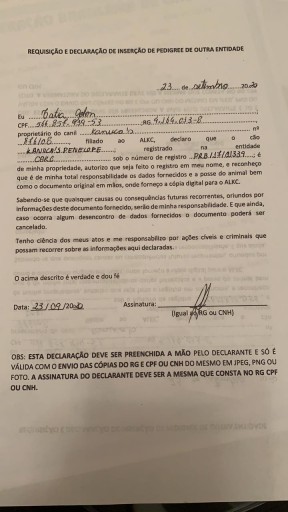 REQUISIÇÃO E DECLARAÇÃO DE INSERÇÃO DE PEDIGREE DE OUTRA ENTIDADE
23 de setembro 2020
Eu
CPF RG
proprietário do canil Kanuca's nº
filiado ao ALKC, declaro que o cão
KANUCA'S PENELOPE, registrado na entidade
CBKC sob o número de registro é
de minha propriedade, autorizo que seja feito o registro em meu nome, e reconheço
que é de minha total responsabilidade os dados fornecidos e a posse do animal bem
como o documento original em mãos, onde forneço a cópia digital para o ALKC.
Sabendo-se que quaisquer causas ou consequências futuras recorrentes, oriundos por
informações deste documento fornecido, serão de minha responsabilidade. E que ainda,
caso ocorra algum desencontro de dados fornecidos o documento poderá ser
cancelado.
Tenho ciência dos meus atos e me responsabilizo por ações cíveis e criminais que
possam recorrer sobre as informações aqui declaradas.
O acima descrito é verdade e dou fé
Data: 23/09/2020 Assinatura:
(Igual ao RG ou CNH)
OBS: ESTA DECLARAÇÃO DEVE SER PREENCHIDA A MÃO PELO DECLARANTE E SÓ É
VÁLIDA COM O ENVIO DAS CÓPIAS DO RG E CPF OU CNH DO MESMO EM JPEG, PNG OU
FOTO. A ASSINATURA DO DECLARANTE DEVE SER A MESMA QUE CONSTA NO RG CPF
OU CNH.